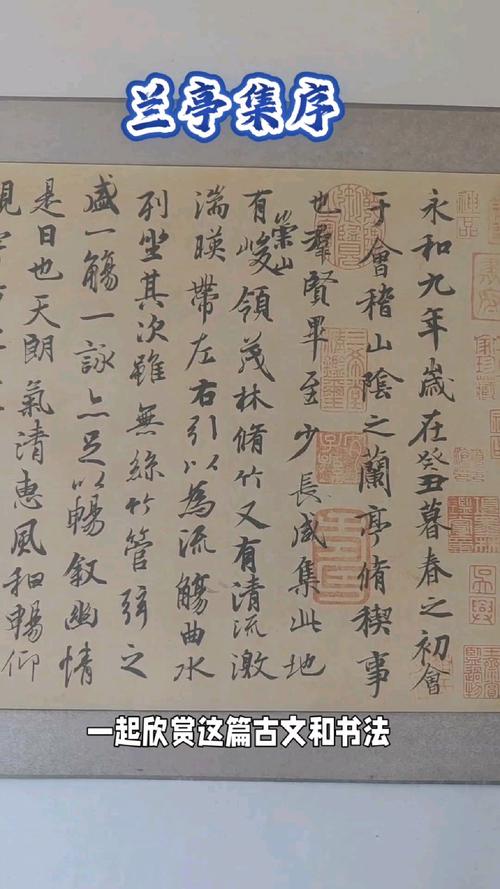 兰亭集序
永和九年歲在癸丑暮春之初會
于會稽山陰之蘭亭脩稧事
也羣賢畢至少長咸集此地
有崇山峻領茂林脩竹又有清流激
湍暎帶左右引以為流觴曲水
列坐其次雖無絲竹管弦之
盛一觴一詠亦足以暢敘幽情
是日也天朗氣清惠風和暢仰
一起欣赏这篇古文和书法
神品